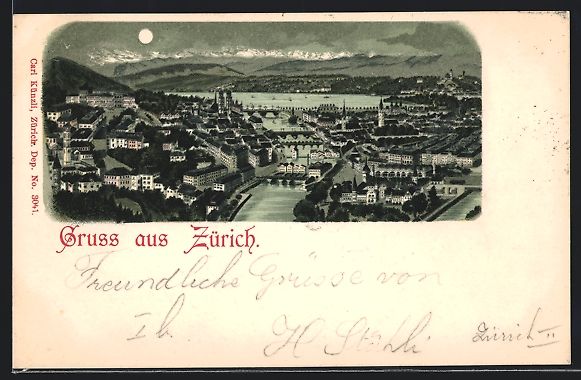 Carl Künzli, Zürich. Dep. No. 3041.
Gruss aus Zürich.
Freundliche Grüsse von
Zürich II